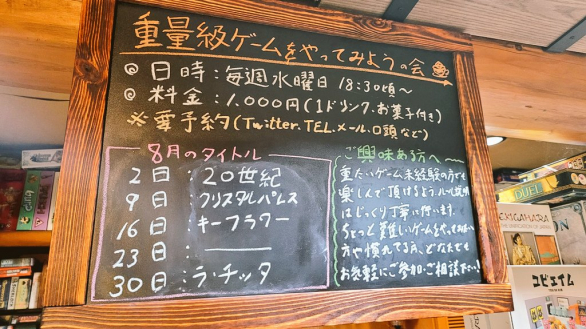 重量級ゲームをやってみようの会
◎ 日時：毎週水曜日 18:30頃～
◎ 料金：1,000円(1ドリンク、お菓子付き)
※ 要予約(Twitter、TEL、メール、口頭など)
8月のタイトル
2日：20世紀
9日：クリスタルパレス
16日：キーフラワー
23日：―――
30日：ラ・チッタ
ご興味ある方へ
重たいゲーム未経験の方でも
楽しんで頂けるよう、ルール説明
はじっくり丁寧に行います。
ちょっと難しいゲームをやってみたい
方や慣れてる方、どなたでも
お気軽にご参加・ご相談下さい!
DUEL
ユピエイム